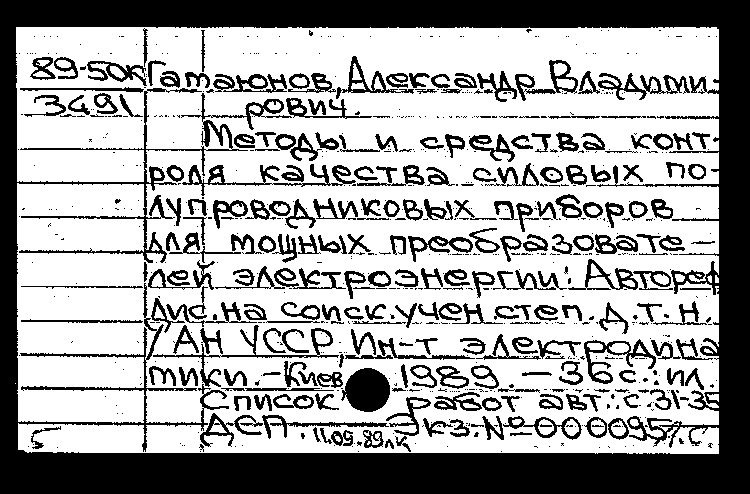 89-50к Гатаюнов, Александр Владими-
3491 рович.
Методы и средства конт-
роля качества силовых по-
лупроводниковых приборов
для мощных преобразовате-
лей электроэнергии: Автореф
дис. на соиск. учен. степ. д.т.н.
/ АН УССР, Ин-т электродина
мики. - Киев, 1989. - 36 с.: ил.
Список работ авт.: с. 31-35
5 ДСП. 11.09.89лк Экз. № 000095 с.